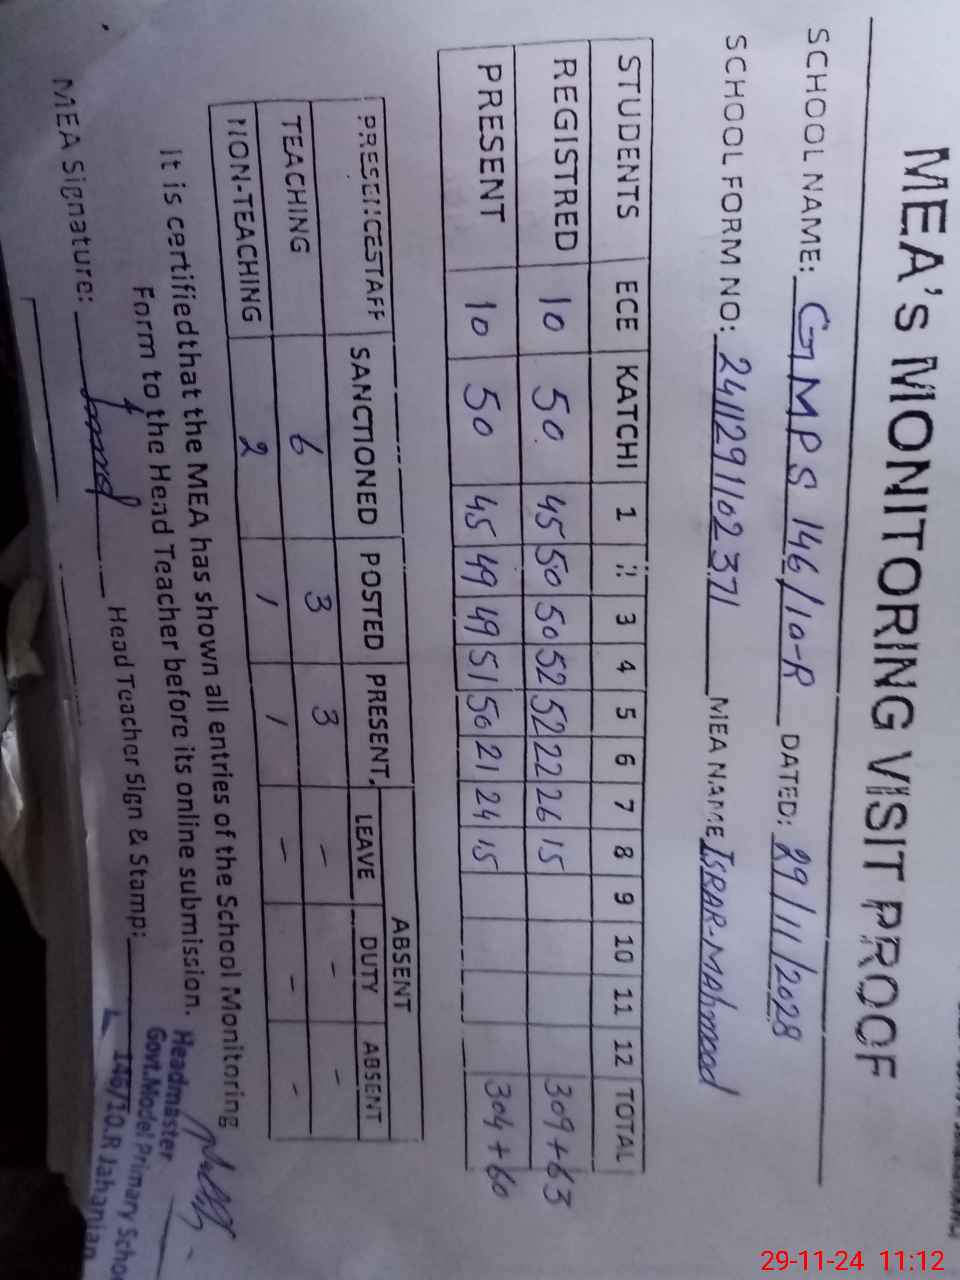 MEA's MONITORING VISIT PROOF
SCHOOL NAME: GMPS 146/10-R DATED: 29/11/2028
SCHOOL FORM NO: 2411291102371 MEA NAME ISRAR-MAhmood
STUDENTS ECE KATCHI 1 2 3 4 5 6 7 8 9 10 11 12 TOTAL
REGISTRED 10 50 45 50 50 52 52 22 26 15 309+63
PRESENT 10 50 45 49 49 51 50 21 24 15 304+60
PRESENCESTAFF SANCTIONED POSTED PRESENT, ABSENT
LEAVE DUTY ABSENT
TEACHING 6 3 3 - - -
NON-TEACHING 2 1 1 - - -
It is certifiedthat the MEA has shown all entries of the School Monitoring
Form to the Head Teacher before its online submission.
MEA Signature: Head Teacher Sign & Stamp:
Headmaster
Govt.Model Primary Schoo
146/10.R Jahanian
29-11-24 11:12